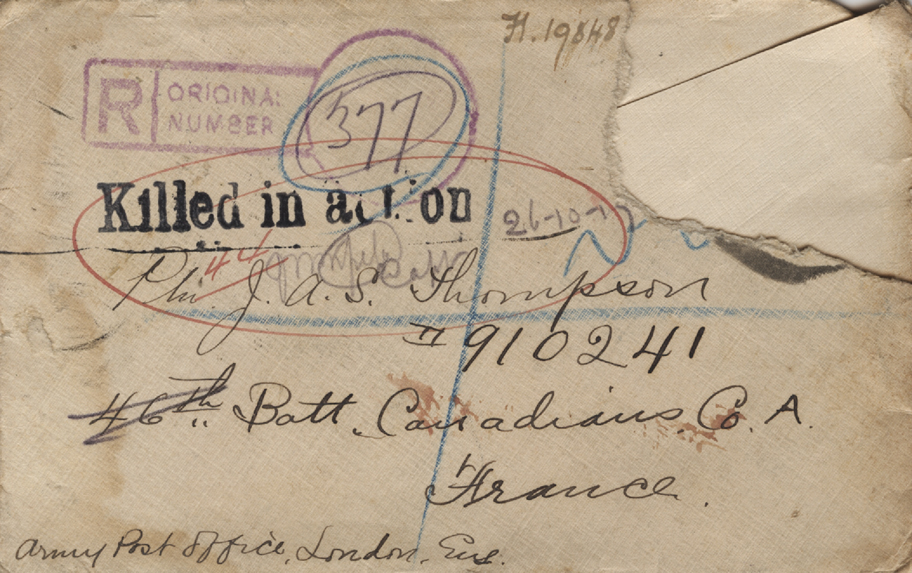 H. 19848
R ORIGINAL NUMBER
377
Killed in action
26-10-17
44
Phi J. A. S. Thompson
# 910241
46th Batt. Canadians Co. A.
France.
Army Post Office, London, Eng.